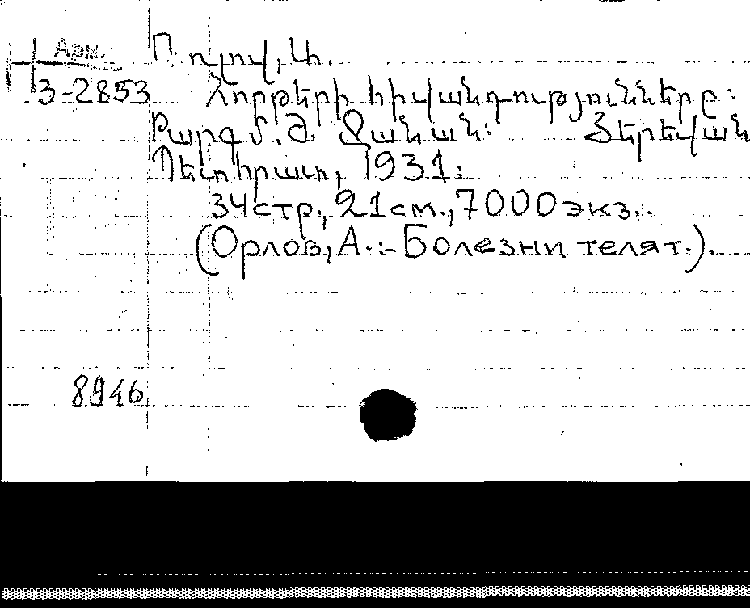 Арм.
3-2853
Օռլով, Ա.
Հորթերի հիվանդությունները:
Թարգմ. Ա. Զանան: Յերեվան
Պետհրատ, 1931:
34 стр., 21 см., 7000 экз.
(Орлов, А.:- Болезни телят.).
8946